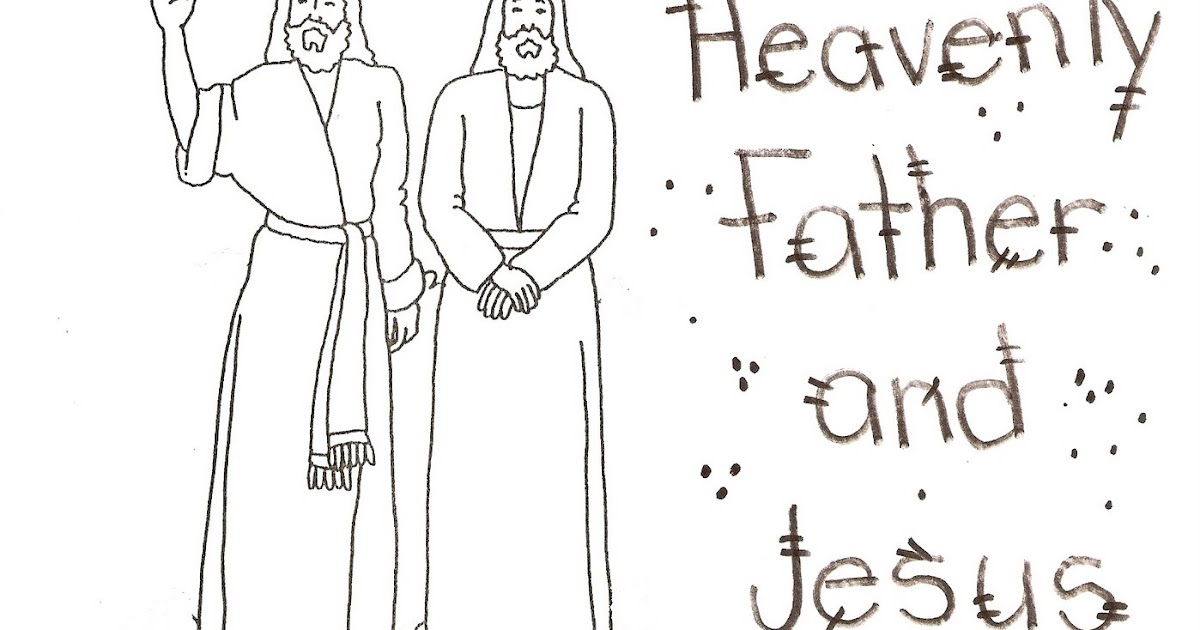 Heavenly
Father
and
Jesus